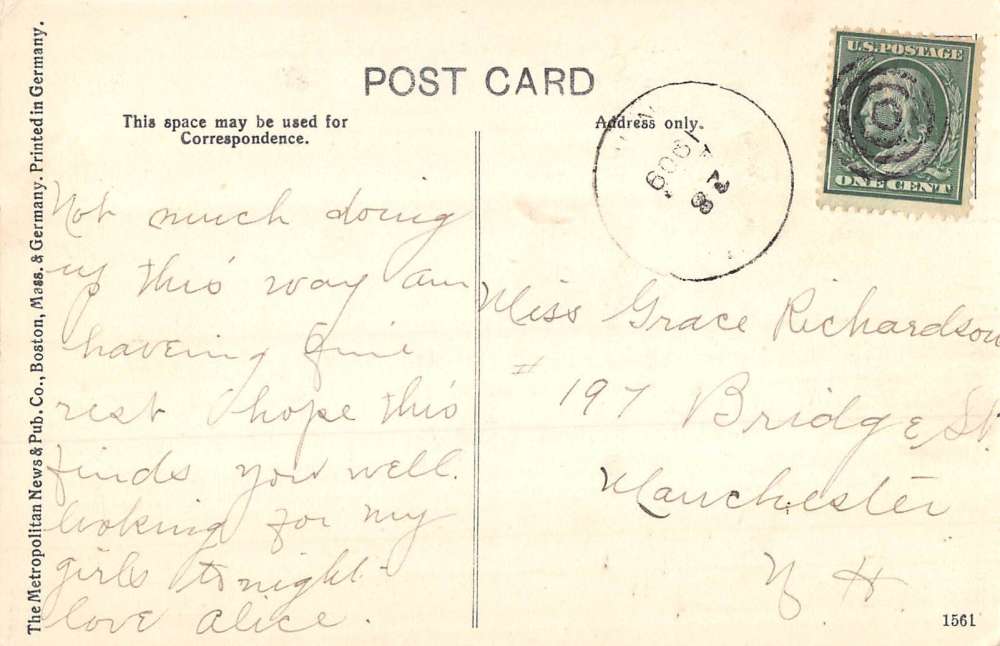 POST CARD
This space may be used for
Correspondence.
Address only.
U.S.POSTAGE
ONE CENT
1909
The Metropolitan News & Pub. Co., Boston, Mass. & Germany. Printed in Germany.
Not much doing
up this way am
haveing fine
rest hope this
finds you well.
looking for my
girls tonight.
love Alice.
Miss Grace Richardson
# 197 Bridge St
Manchester
N H.
1561